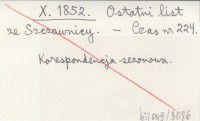 X. 1852. Ostatni list
ze Szczawnicy. – Czas nr 224.
Korespondencja sezonowa.